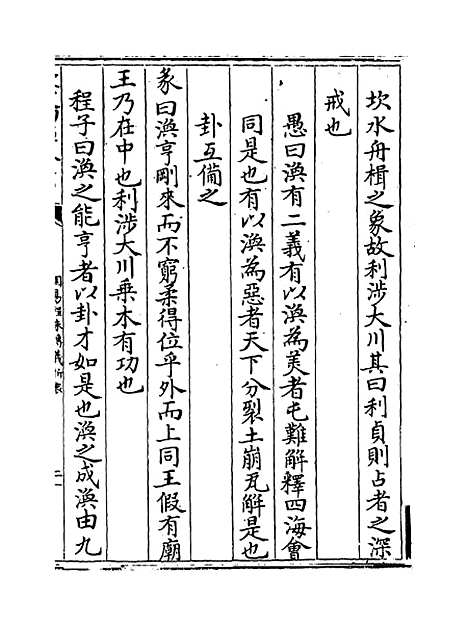 坎水舟楫之象故利涉大川其曰利貞則占者之深
戒也
愚曰渙有二義有以渙為美者屯難解釋四海會
同是也有以渙為惡者天下分裂土崩瓦解是也
卦互備之
彖曰渙亨剛來而不窮柔得位乎外而上同王假有廟
王乃在中也利涉大川乗木有功也
程子曰渙之能亨者以卦才如是也渙之成渙由九